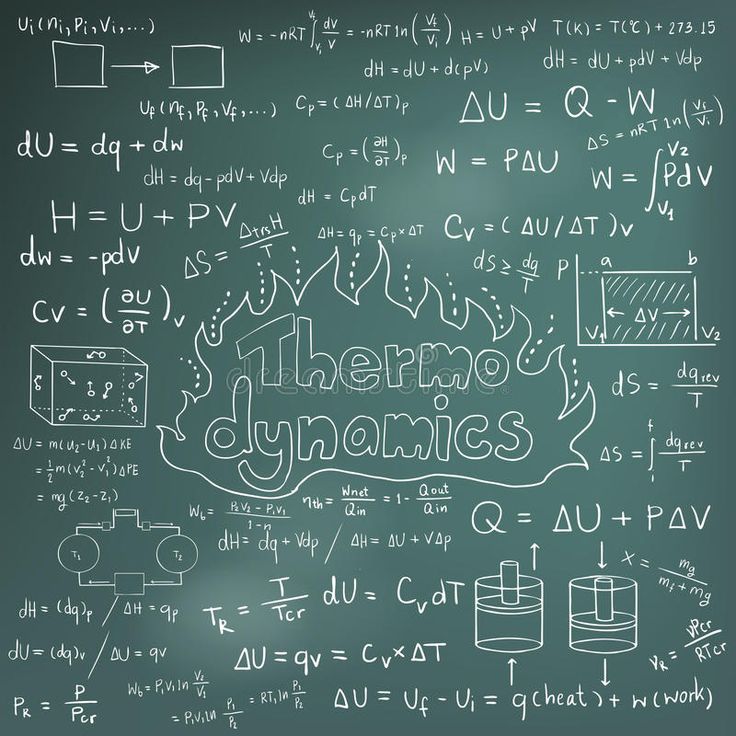 Ui(ni,Pi,Vi,...)
W = -nRT ∫ᵥᵢⱽᶠ dv/V = -nRT ln(Vf/Vi)
H = U + pV
T(K) = T(℃) + 273.15
dH = dU + d(pV)
dH = dU + pdV + Vdp
Uf(nf,Pf,Vf,...)
Cp = (ΔH/ΔT)p
ΔU = Q - W
ΔS = nRT ln(Vf/Vi)
dU = dq + dw
Cp = (∂H/∂T)p
W = PΔU
W = ∫V₁V₂ PdV
dH = dq - pdV + Vdp
dH = CpdT
H = U + PV
ΔS = ΔtrsH/T
ΔH = qp = Cp×ΔT
Cv = (ΔU/ΔT)v
dw = -pdV
dS ≥ dq/T
P a b
ΔV
V₁ V₂
Cv = (∂U/∂T)v
Thermo
dynamics
dreamstime
dS = dqrev/T
ΔU = m(u₂-u₁)ΔKE
= 1/2 m(v₂²-v₁²)ΔPE
= mg(z₂-z₁)
ΔS = ∫if dqrev/T
Wb = P₂V₂ - P₁V₁/1-n
ηth = Wnet/Qin = 1 - Qout/Qin
Q = ΔU + PΔV
dH = dq + Vdp / ΔH = ΔU + VΔp
T₁ T₂
X = mg/mf + mg
dH = (dq)p / ΔH = qp
TR = T/Tcr
dU = CvdT
dU = (dq)v / ΔU = qv
ΔU = qv = Cv×ΔT
vR = vPcr/RTcr
PR = P/Pcr
Wb = P₁V₁ ln V₂/V₁
= P₁V₁ ln P₁/P₂ = RT₁ ln P₁/P₂
ΔU = Uf - Ui = q(heat) + w(work)